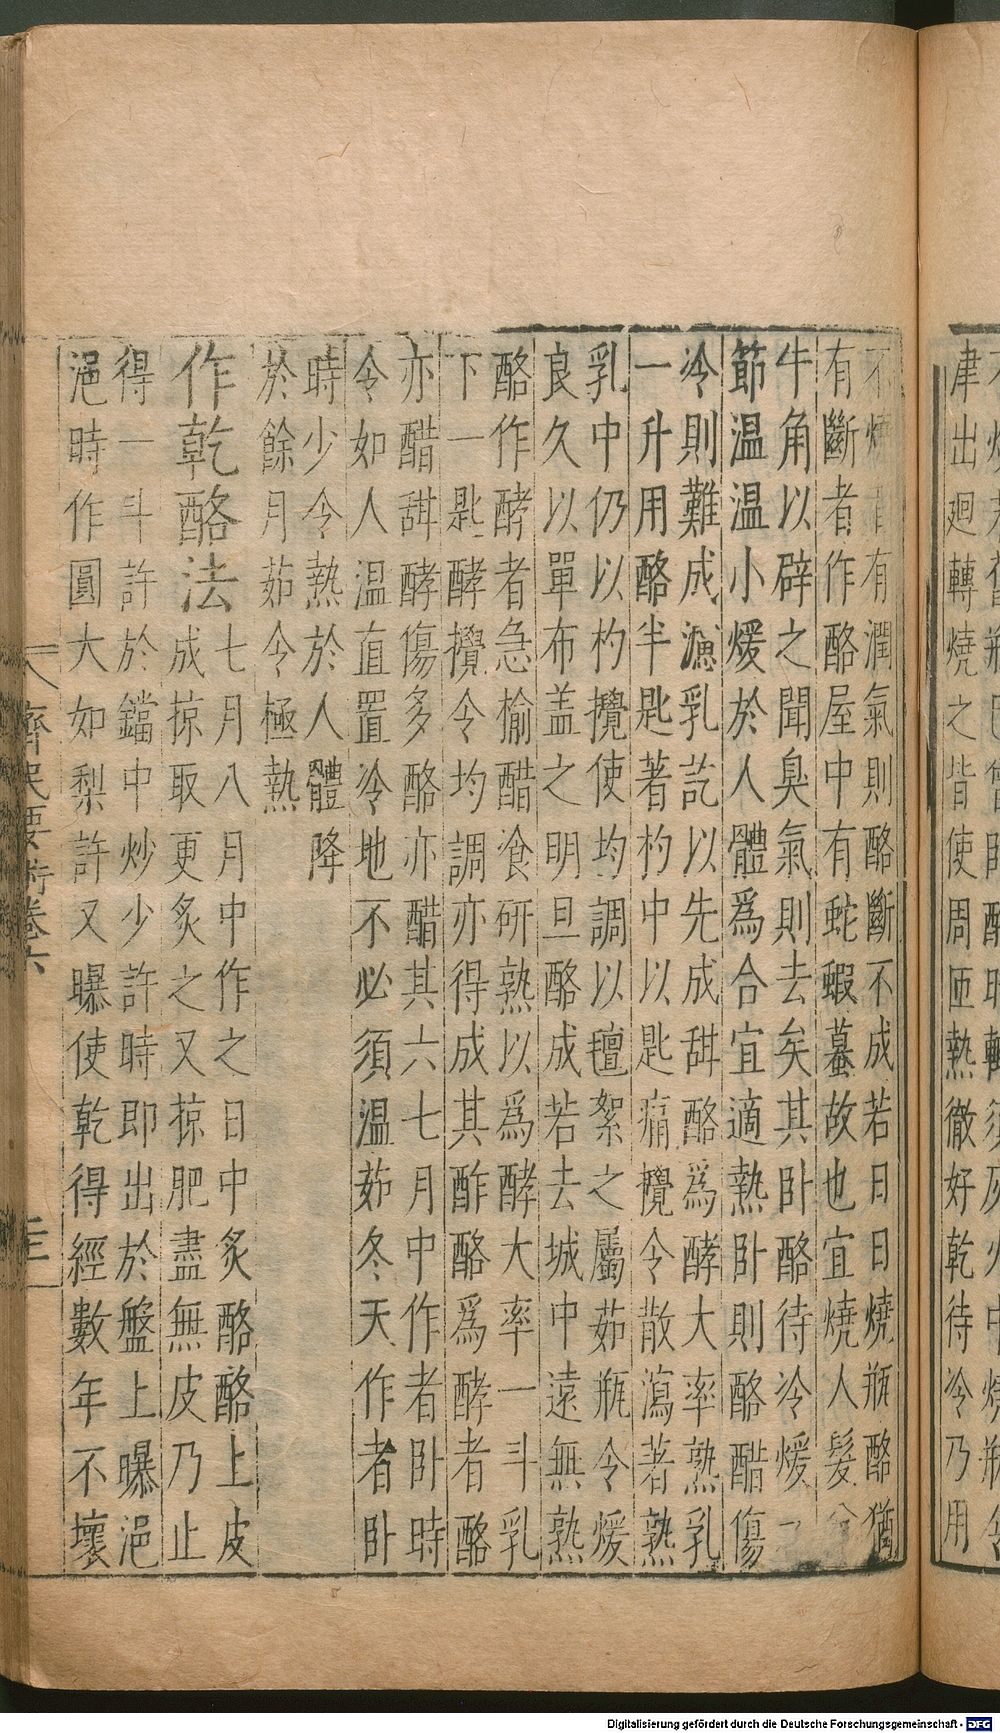 津出廻轉燒之皆使周匝熱徹好乾待冷乃用
不燒有潤氣則酪斷不成若日日燒瓶酪猶
有斷者作酪屋中有蛇蝦蟇故也宜燒人髮
牛角以辟之聞臭氣則去矣其卧酪待冷煖
節温温小煖於人體爲合宜適熱卧則酪醋傷
冷則難成濾乳訖以先成甜酪爲酵大率熟乳
一升用酪半匙著杓中以匙痛攪令散瀉著熟
乳中仍以杓攪使均調以氊絮之屬茹瓶令煖
良久以單布盖之明旦酪成若去城中遠無熟
酪作酵者急揄醋飡研熟以爲酵大率一斗乳
下一匙酵攪令均調亦得成其酢酪爲酵者酪
亦醋甜酵傷多酪亦醋其六七月中作者卧時
令如人温直置冷地不必須温茹冬天作者卧
時少令熱於人體降
於餘月茹令極熱
作乾酪法 七月八月中作之日中炙酪酪上皮
成掠取更炙之又掠肥盡無皮乃止
得一斗許於鐺中炒少許時即出於盤上曝浥
浥時作圓大如梨許又曝使乾得經數年不壞
齊民要術卷六
Digitalisierung gefördert durch die Deutsche Forschungsgemeinschaft - DFG